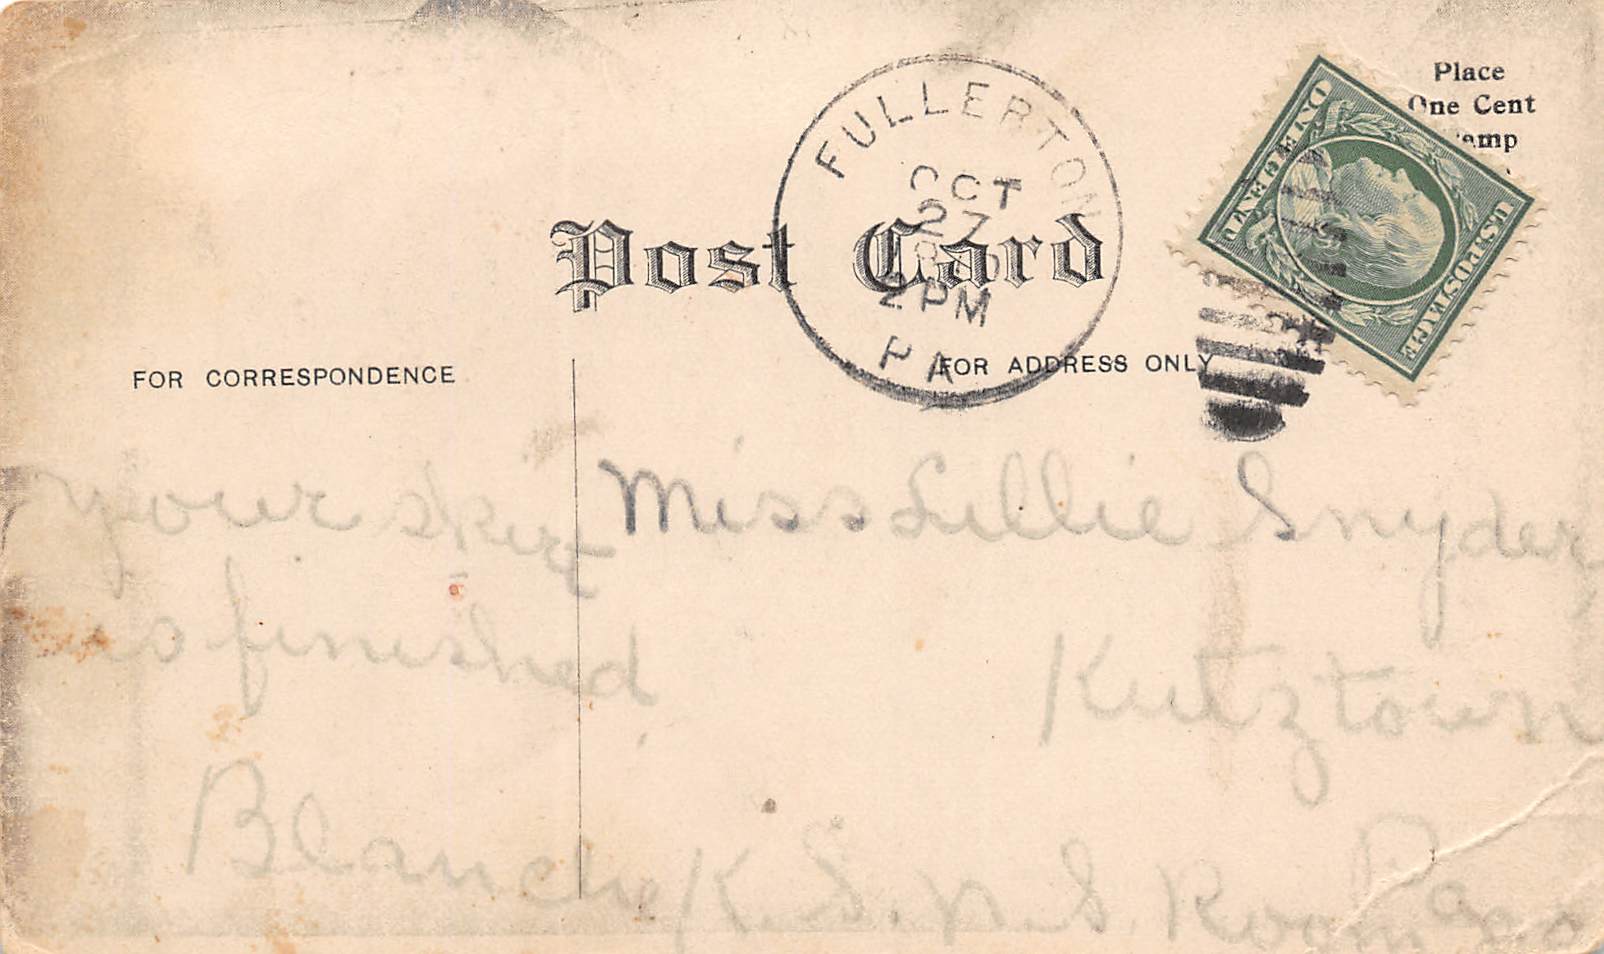 Place
One Cent
Stamp
ONE CENT
U.S. POSTAGE
FULLERTON
OCT
27
2 PM
PA
Post Card
FOR CORRESPONDENCE
FOR ADDRESS ONLY
your skirt
is finished
Blanche
Miss Lillie Snyder,
Kutztown
Pa
K. S. N. S. Room